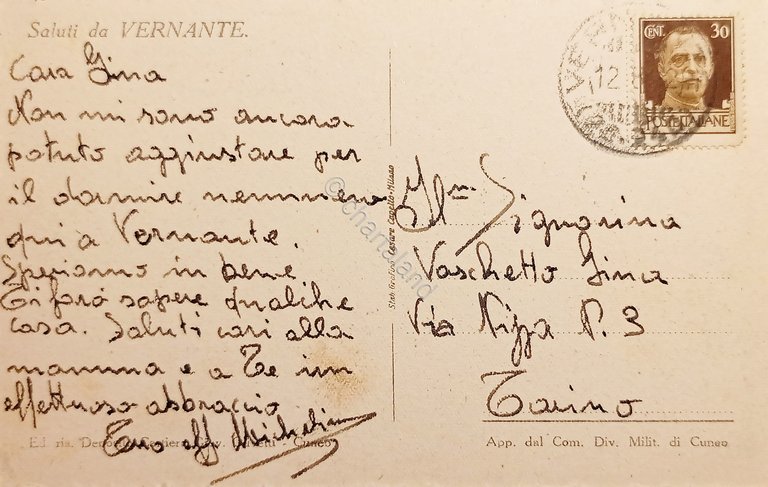 Saluti da VERNANTE.
Cara Gina
Non mi sono ancora
potuto aggiustare per
il dormire nemmeno
qui a Vernante.
Speriamo in bene
Ti farò sapere qualche
cosa. Saluti cari alla
mamma e a Te un
affettuoso abbraccio
Tuo aff Michelin
CENT. 30
POSTE ITALIANE
12
Ill.ma Signorina
Vaschetto Gina
Via Nizza N. 3
Torino
Cuneo
App. dal Com. Div. Milit. di Cuneo
© chartaland